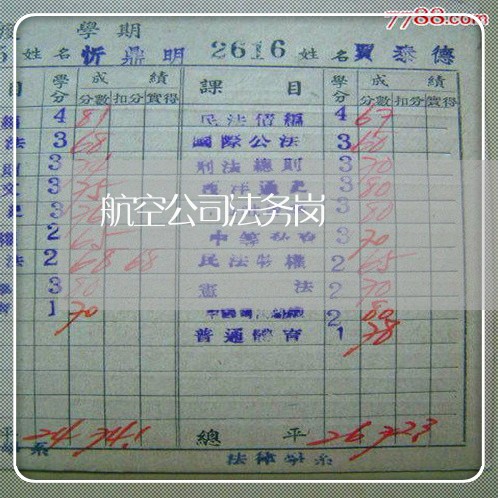 7788.com
學期
姓名 忻鼎明 2616 姓名 賈泰德
目 學分 成績 課目 學分 成績
分數 扣分 實得 分數 扣分 實得
4 81 民法債編 4 67
法 3 68 國際公法 3 60
3 刑法總則 3 70
文 3 75 西洋通史 3 80
3 3 80
航空公司法务岗
權 2 65 3 70
法 2 68 68 民法物權 2 65
3 80 憲法 2 70
1 70 2 80
普通體育 1 78
平 24 74.1 總平 26 72.3
系 法律學系